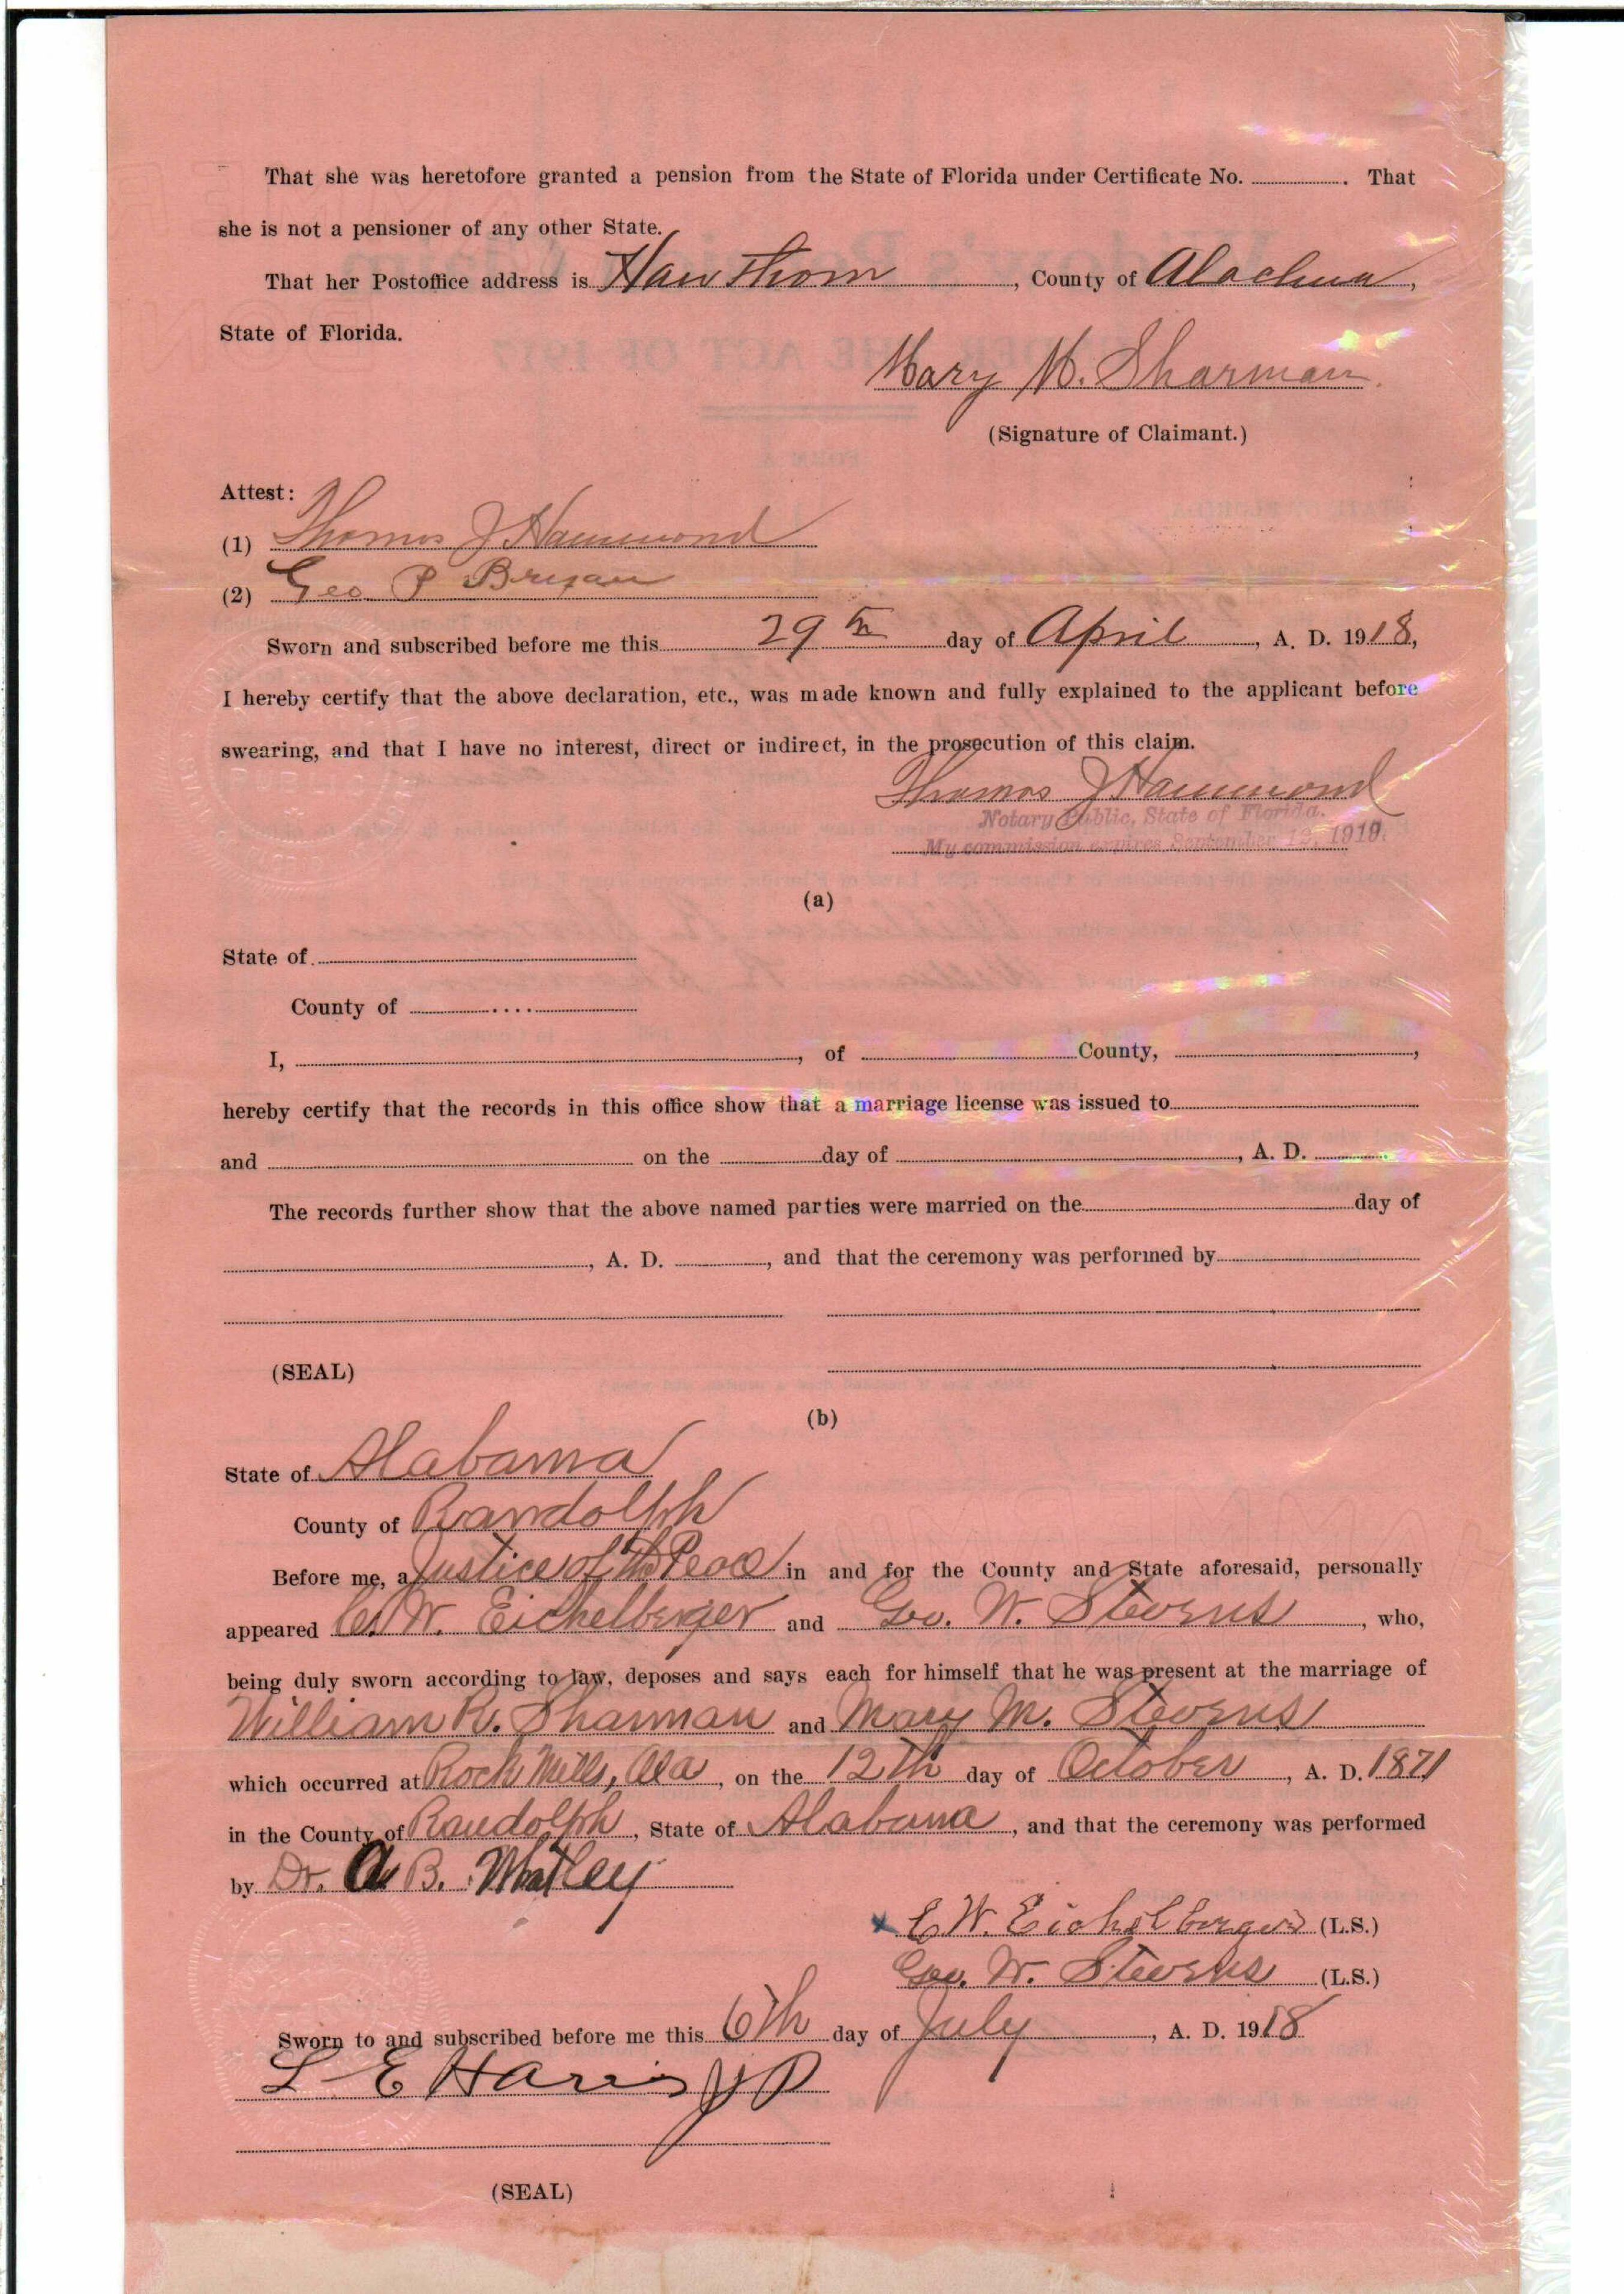 That she was heretofore granted a pension from the State of Florida under Certificate No. ........ . That
she is not a pensioner of any other State.
That her Postoffice address is Hawthorn, County of Alachua,
State of Florida.
Mary M. Sharman.
(Signature of Claimant.)
Attest:
(1) Thomas J Hammond
(2) Geo P Bryan
Sworn and subscribed before me this 29th day of April, A. D. 1918,
I hereby certify that the above declaration, etc., was made known and fully explained to the applicant before
swearing, and that I have no interest, direct or indirect, in the prosecution of this claim.
Thomas J Hammond
Notary Public, State of Florida.
My commission expires September 1919.
(a)
State of
County of
I, , of County, ,
hereby certify that the records in this office show that a marriage license was issued to
and on the day of , A. D.
The records further show that the above named parties were married on the day of
, A. D. , and that the ceremony was performed by
(SEAL)
(b)
State of Alabama
County of Randolph
Before me, a Justice of the Peace in and for the County and State aforesaid, personally
appeared C. W. Eichelberger and Geo. W. Stevens, who,
being duly sworn according to law, deposes and says each for himself that he was present at the marriage of
William R. Sharman and Mary M. Stevens
which occurred at Rock Mills, Ala, on the 12th day of October, A. D. 1871
in the County of Randolph, State of Alabama, and that the ceremony was performed
by Dr. A B.
C W. Eichelberger (L.S.)
Geo. W. Stevens (L.S.)
Sworn to and subscribed before me this 6th day of July, A. D. 1918
L E Harris JP
(SEAL)